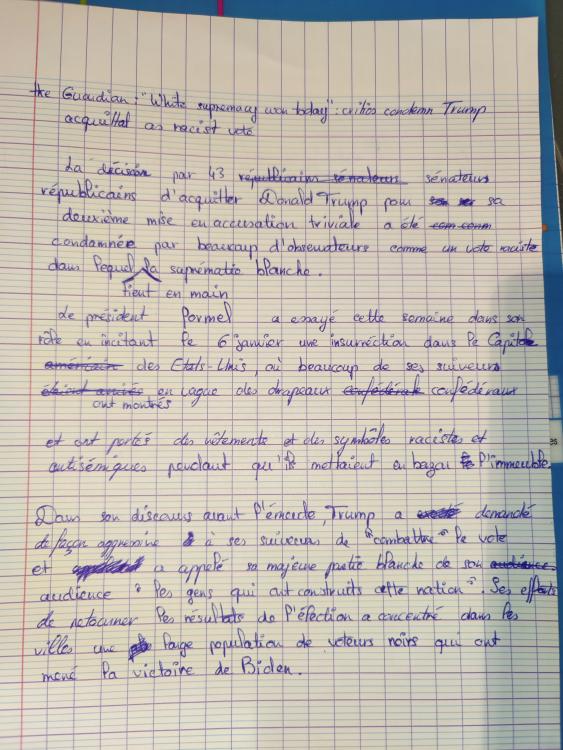 the Guardian : "White supremacy won today" : critics condemn Trump
acquittal as racist vote
La décision par 43 républicains sénateurs sénateurs
républicains d'acquitter Donald Trump pour sa
deuxième mise en accusation triviale a été
condamnée par beaucoup d'observateurs comme un vote raciste
dans lequel la suprématie blanche.
tient en main
Le président formel a essayé cette semaine dans son
rôle en incitant le 6 janvier une insurréction dans le Capitole
américain des Etats-Unis, où beaucoup de ses suiveurs
étaient arrivés en vague des drapeaux confédérals confédéraux
ont montrés
et ont portés des vêtements et des symbôles racistes et
antisémiques pendant qu'ils mettaient en bazar l'immeuble.
Dans son discours avant l'émeute, Trump a demandé
de façon aggressive à ses suiveurs de "combattre" le vote
et a appelé sa majeure partie blanche de son audience
audience "les gens qui ont construits cette nation". Ses efforts
de retourner les résultats de l'élection a concentré dans les
villes une large population de voteurs noirs qui ont
mené la victoire de Biden.